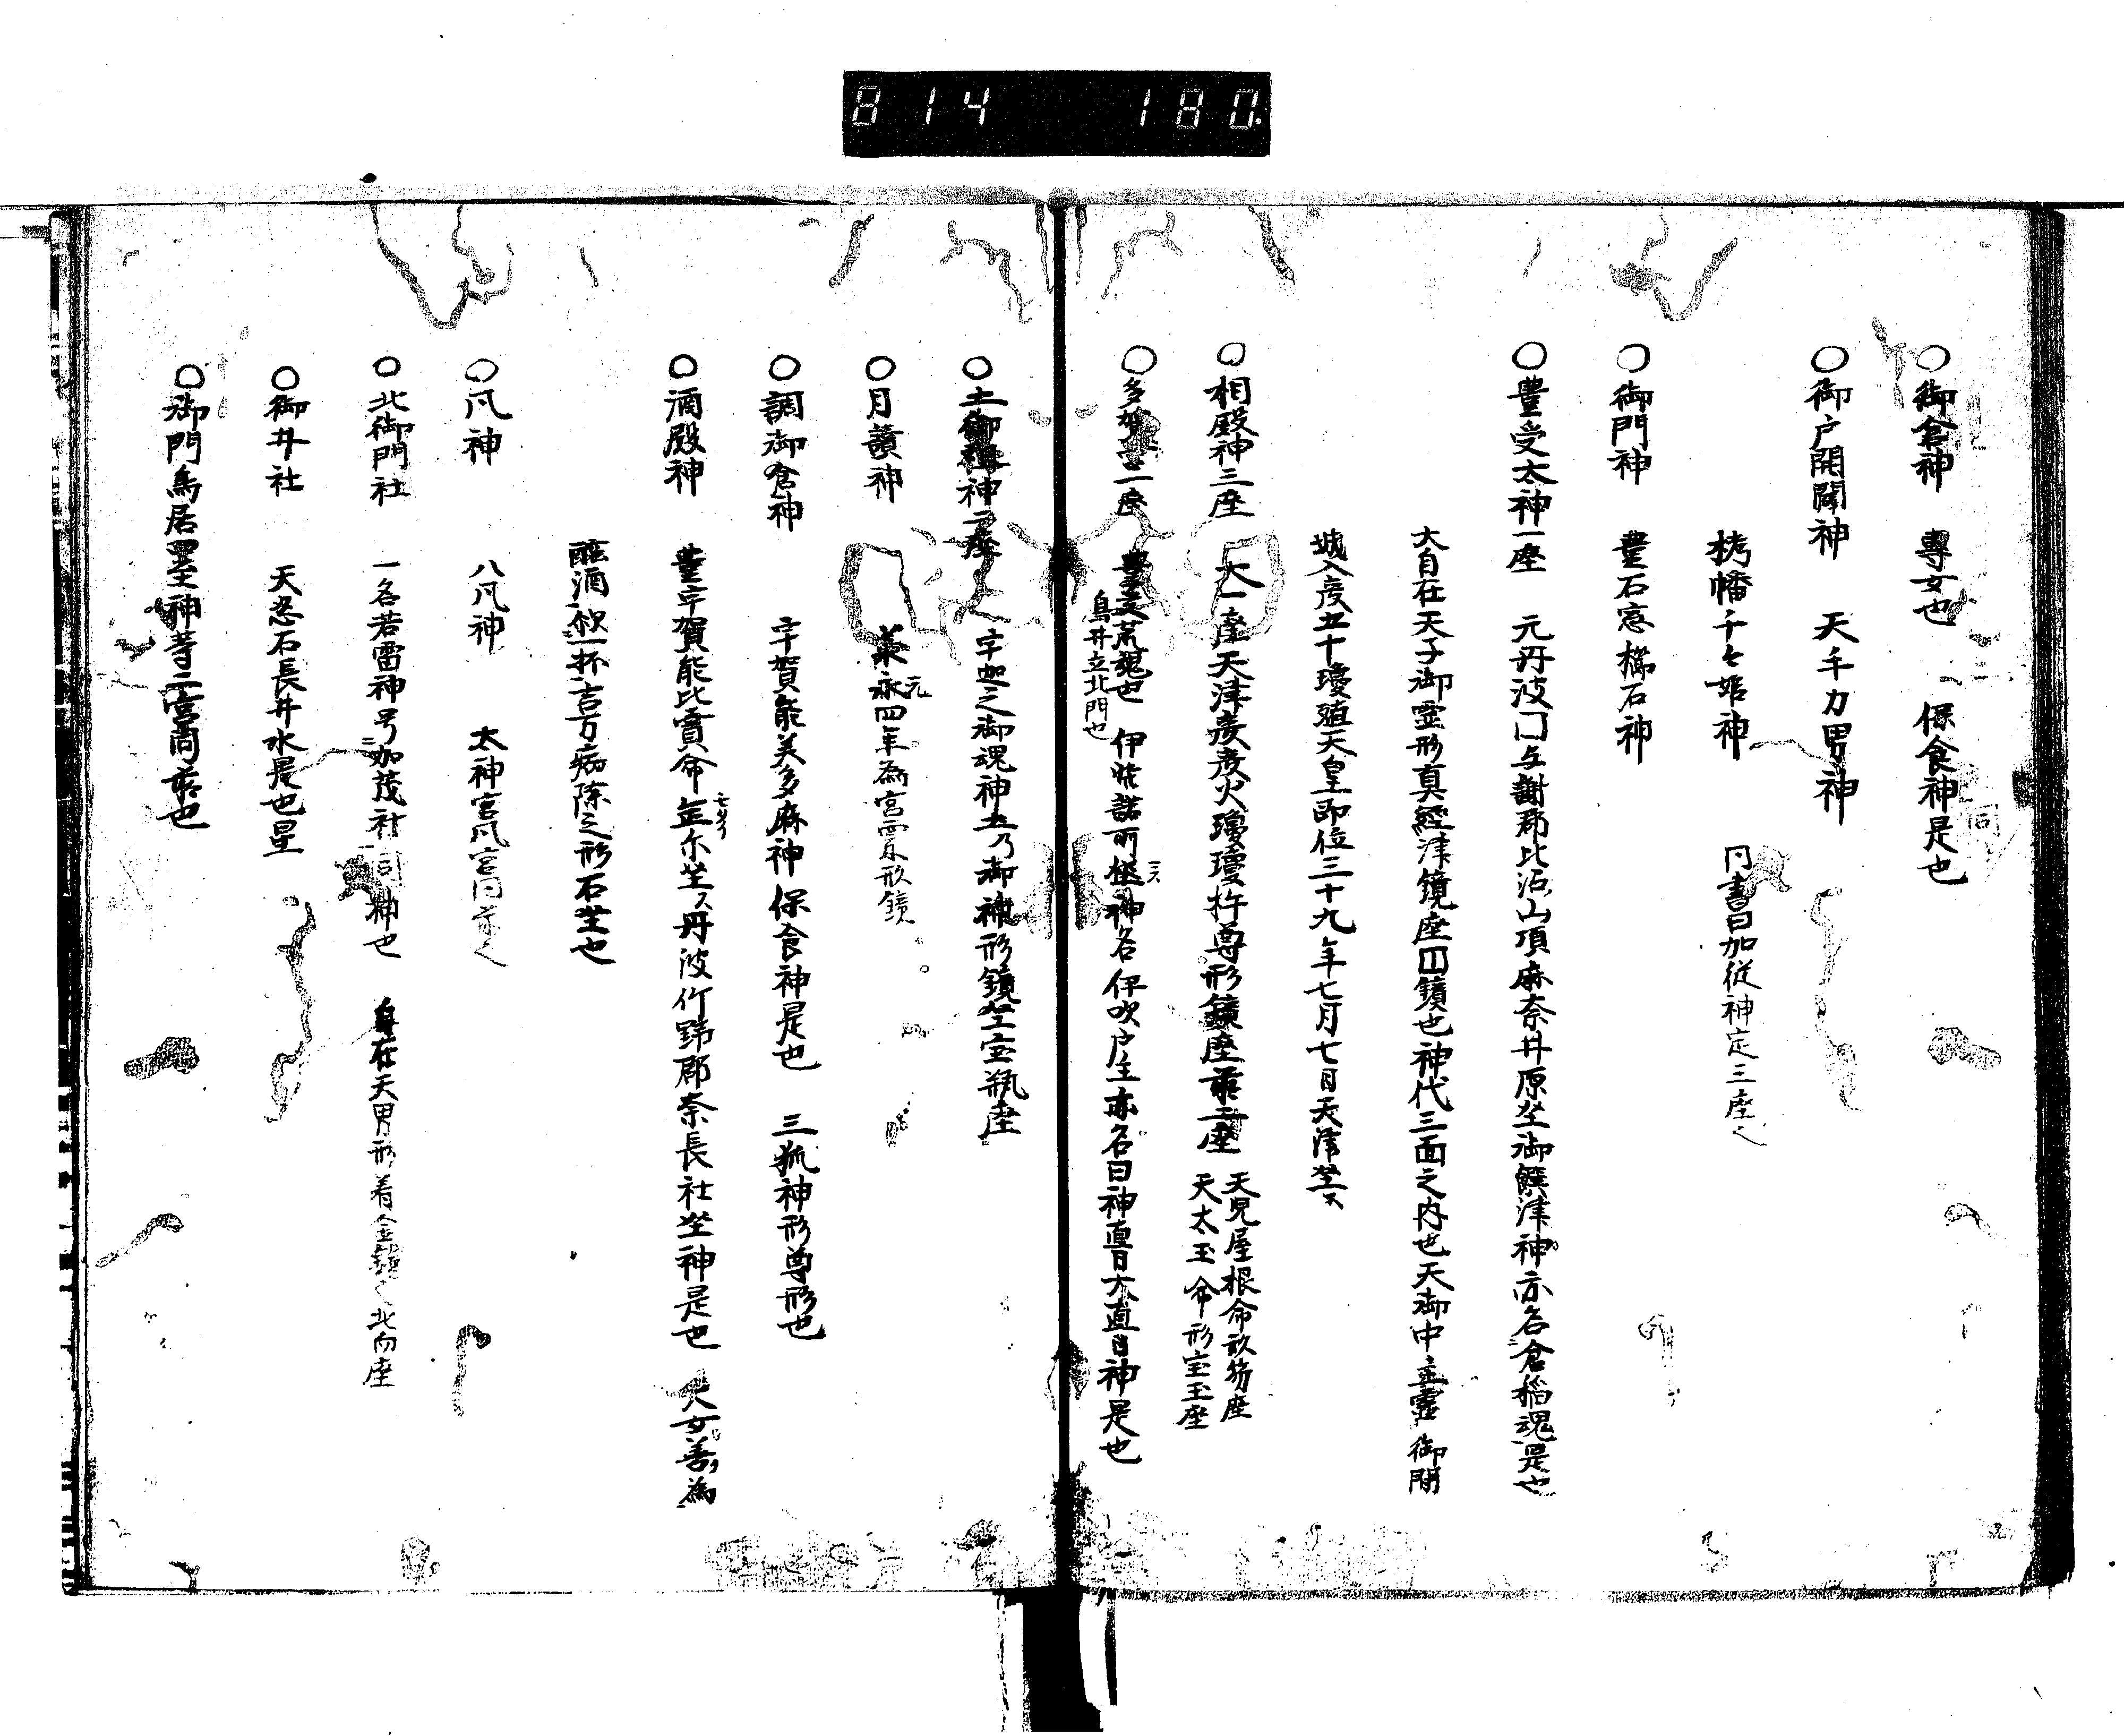 814 180.
○御倉神 專女也 保食神是也
○御戸開闢神 天千力男神
栲幡千々姫神 同書曰加従神定三座也
○御門神 豊石窓櫛石神
○豊受太神一座 元丹波国与謝郡比沼山頂麻奈井原坐御饌津神亦名倉稲魂是也
大自在天子御霊形真経津鏡座四鏡也神代三面之内也天御中主霊御開
城入彦五十瓊殖天皇即位三十九年七月七日天津坐ス
○相殿神三座 大一座天津彦彦火瓊瓊杵尊形鏡座前二座 天児屋根命形笏座
天太玉命形宝玉座
○多賀宮一座 豊受荒魂也 伊弉諾所化神名伊吹戸主亦名曰神直日大直日神是也
鳥井立北門也
○土御祖神二座 宇迦之御魂神土乃御祖形鏡坐宝瓶座
○月讀神 元永四年為宮 形鏡
○調御倉神 宇賀能美多麻神保食神是也 三狐神形尊形也
○酒殿神 豊宇賀能比賣命 坐ス丹波竹野郡奈具社坐神是也 天女善為
醸酒飲一杯吉万病除之形石坐也
○風神 八風神 太神宮風宮同前也
○北御門社 一名若雷神号加茂社同神也 自在天男形着金鎧也北向座
○御井社 天忍石長井水是也星
○御門鳥居 神等二宮同前也